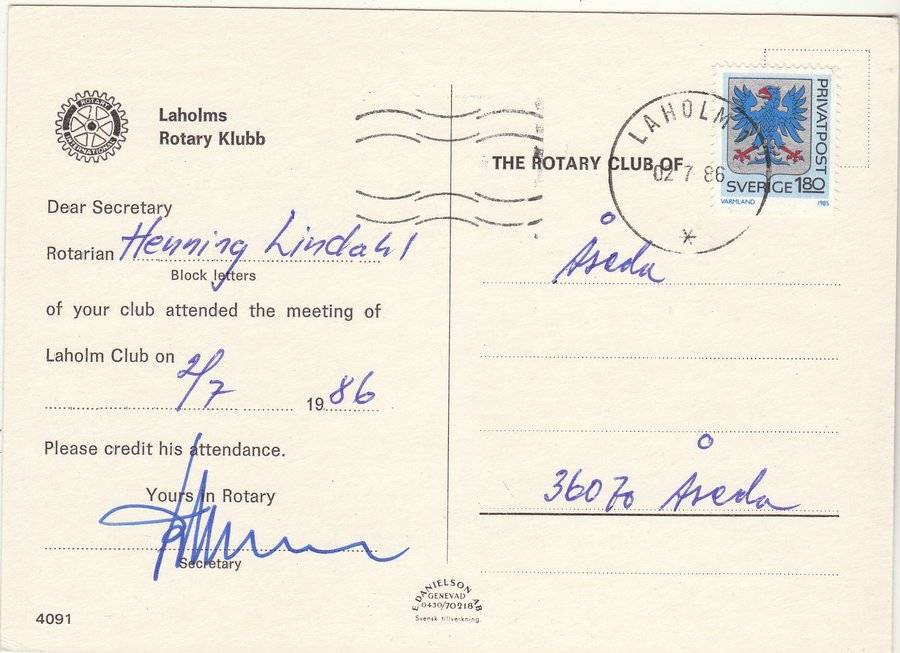 ROTARY
INTERNATIONAL
Laholms
Rotary Klubb
Dear Secretary
Rotarian Henning Lindahl
Block letters
of your club attended the meeting of
Laholm Club on
2/7 1986
Please credit his attendance.
Yours in Rotary
Secretary
4091
THE ROTARY CLUB OF
LAHOLM
02 7 86
PRIVATPOST
SVERIGE 180
VÄRMLAND 1985
Åseda
360 70 Åseda
E. DANIELSON AB
GENEVAD
0430/70218
Svensk tillverkning